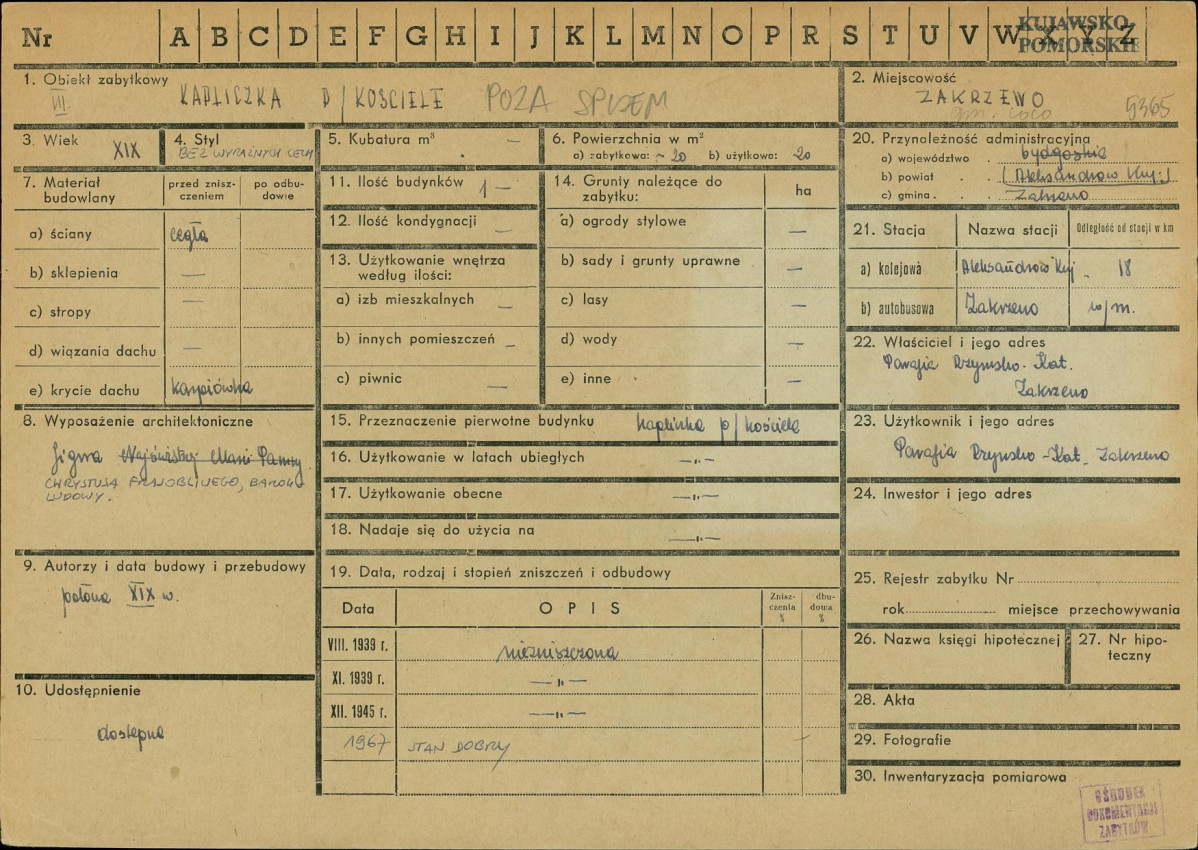 Nr A B C D E F G H I J K L M N O P R S T U V W X Y Z
KUJAWSKO-
POMORSKIE
1. Obiekt zabytkowy
VII. KAPLICZKA P/KOŚCIELE POZA SPISEM
2. Miejscowość
ZAKRZEWO
5365
3. Wiek XIX
4. Styl
BEZ WYRAŹNYCH CECH
5. Kubatura m³ —
6. Powierzchnia w m²
a) zabytkowa: ~ 20 b) użytkowa: 20
20. Przynależność administracyjna
a) województwo . bydgoskie
b) powiat . . (Aleksandrów Kuj.)
c) gmina . . Zakrzewo
7. Materiał budowlany
przed znisz-
czeniem
po odbu-
dowie
a) ściany cegła
b) sklepienia —
c) stropy —
d) wiązania dachu —
e) krycie dachu karpiówka
11. Ilość budynków 1 —
12. Ilość kondygnacji —
13. Użytkowanie wnętrza
według ilości:
a) izb mieszkalnych —
b) innych pomieszczeń —
c) piwnic —
14. Grunty należące do
zabytku:
ha
a) ogrody stylowe —
b) sady i grunty uprawne —
c) lasy —
d) wody —
e) inne —
21. Stacja Nazwa stacji Odległość od stacji w km
a) kolejowa Aleksandrów Kuj. 18
b) autobusowa Zakrzewo w/m.
22. Właściciel i jego adres
Parafia Rzymsko-Kat.
Zakrzewo
8. Wyposażenie architektoniczne
figura Najświętszej Marii Panny
CHRYSTUSA FRASOBLIWEGO, BAROK
LUDOWY.
15. Przeznaczenie pierwotne budynku kapliczka p/kościele
16. Użytkowanie w latach ubiegłych —"—
17. Użytkowanie obecne —"—
18. Nadaje się do użycia na —"—
23. Użytkownik i jego adres
Parafia Rzymsko-Kat. Zakrzewo
24. Inwestor i jego adres
9. Autorzy i data budowy i przebudowy
połowa XIX w.
10. Udostępnienie
dostępna
19. Data, rodzaj i stopień zniszczeń i odbudowy
Data OPIS
Znisz-
czenia
%
dbu-
dowa
%
VIII. 1939 r. niezniszczona
XI. 1939 r. —"—
XII. 1945 r. —"—
1967 STAN DOBRY
25. Rejestr zabytku Nr
rok miejsce przechowywania
26. Nazwa księgi hipotecznej
27. Nr hipo-
teczny
28. Akta
29. Fotografie
30. Inwentaryzacja pomiarowa
OŚRODEK
DOKUMENTACJI
ZABYTKÓW